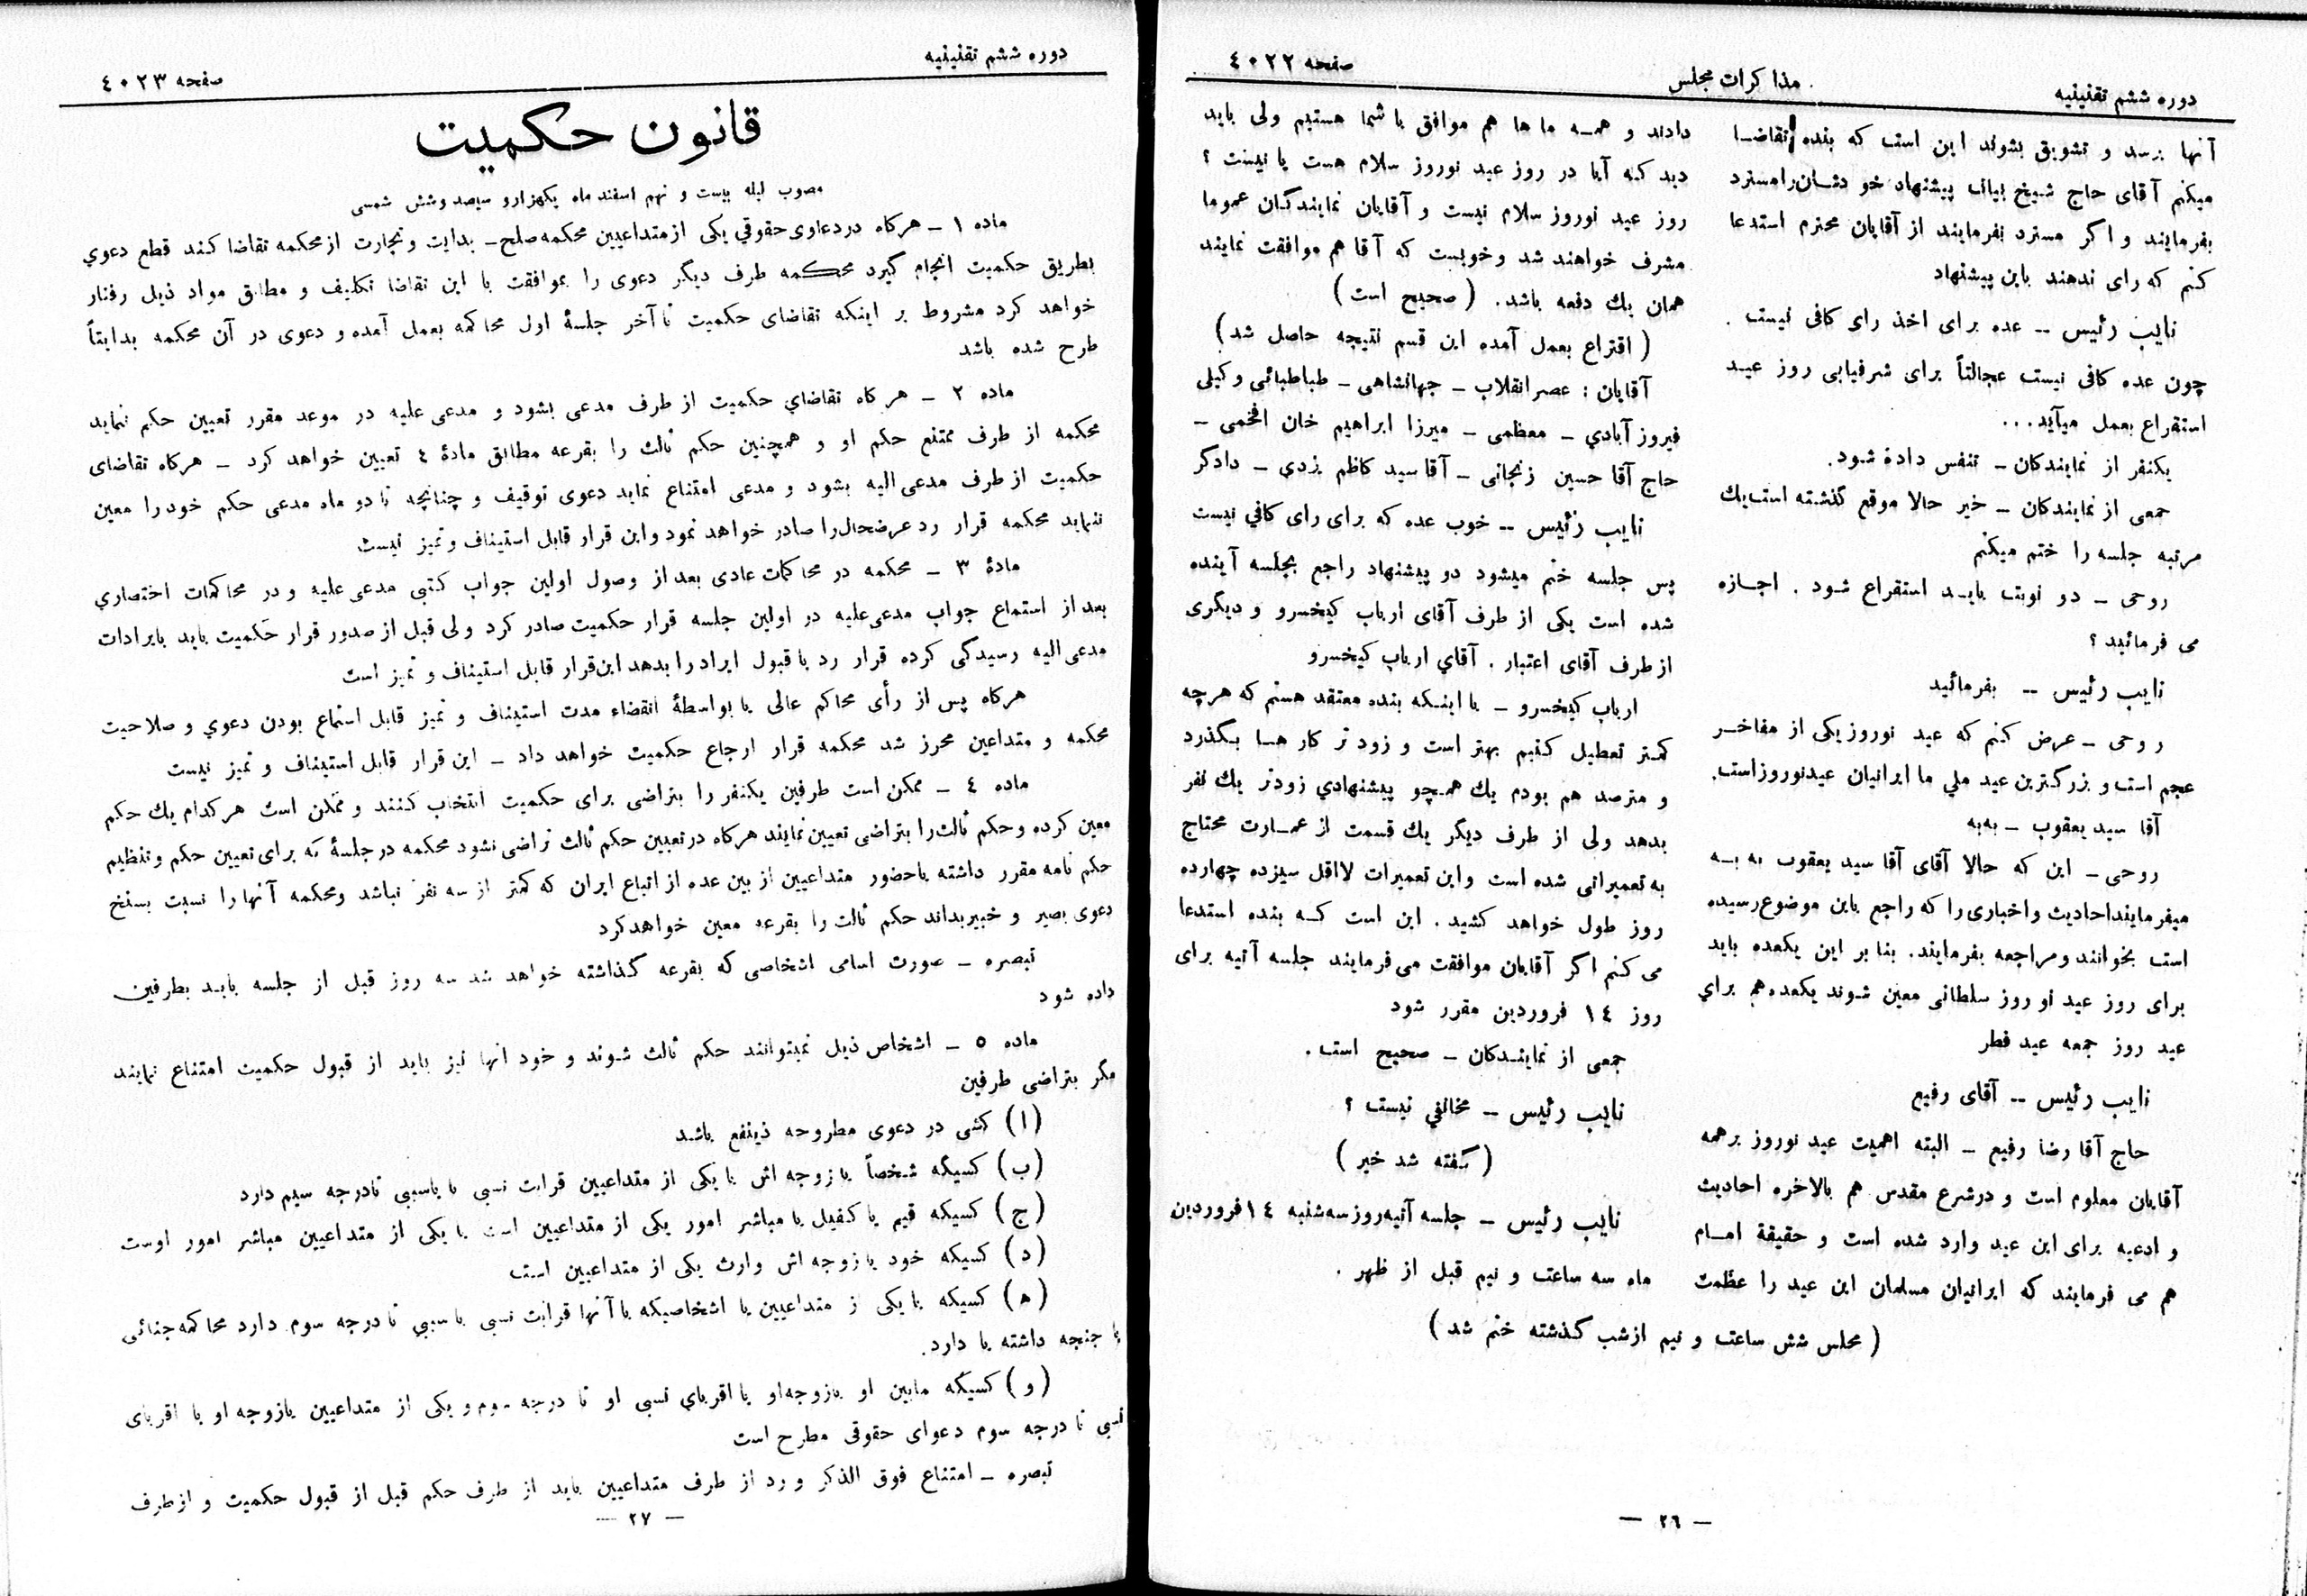 دوره ششم تقنینیه
مذاکرات مجلس
صفحه ٤٠٢٢
آنها برسد و تشویق بشوند این است که بنده تقاضا
میکنم آقای حاج شیخ بیات پیشنهاد خودشان را مسترد
بفرمایند و اگر مسترد نفرمایند از آقایان محترم استدعا
کنم که رای ندهند باین پیشنهاد
نایب رئیس -- عده برای اخذ رای کافی نیست .
چون عده کافی نیست عجالتاً برای شرفیابی روز عید
استقراع بعمل میآید...
یکنفر از نمایندکان - تنفس داده شود.
جمعی از نمایندکان - خیر حالا موقع گذشته است یك
مرتبه جلسه را ختم میکنم
روحی - دو نوبت باید استقراع شود . اجازه
می فرمائید ؟
نایب رئیس -- بفرمائید
روحی - عرض کنم که عید نوروز یکی از مفاخر
عجم است و بزرگترین عید ملي ما ایرانیان عید نوروز است.
آقا سید یعقوب - به به
روحی - این که حالا آقای آقا سید یعقوب به به
میفرمایند احادیث و اخباری را که راجع باین موضوع رسیده
است بخوانند و مراجعه بفرمایند. بنا بر این یکعده باید
برای روز عید نو روز سلطانی معین شوند یکعده هم براي
عید روز جمعه عید فطر
نایب رئیس -- آقای رفیع
حاج آقا رضا رفیع - البته اهمیت عید نوروز بر همه
آقایان معلوم است و در شرع مقدس هم بالاخره احادیث
و ادعیه برای این عید وارد شده است و حقیقة امام
هم می فرمایند که ایرانیان مسلمان این عید را عظمت
دادند و همه ما ها هم موافق با شما هستیم ولی باید
دید که آیا در روز عید نوروز سلام هست یا نیست ؟
روز عید نوروز سلام نیست و آقایان نمایندگان عموما
مشرف خواهند شد و خوبست که آقا هم موافقت نمایند
همان یك دفعه باشد. ( صحیح است )
( اقتراع بعمل آمده این قسم نتیجه حاصل شد )
آقایان : عصر انقلاب - جهانشاهی - طباطبائی وکیلی
فیروز آبادي - معظمی - میرزا ابراهیم خان افخمی -
حاج آقا حسین زنجانی - آقا سید کاظم یزدي - دادگر
نایب رئیس -- خوب عده که برای رای کافي نیست
پس جلسه ختم میشود دو پیشنهاد راجع بجلسه آینده
شده است یکی از طرف آقای ارباب کیخسرو و دیگری
از طرف آقای اعتبار . آقاي ارباب کیخسرو
ارباب کیخسرو - با اینکه بنده معتقد هستم که هر چه
کمتر تعطیل کنیم بهتر است و زود تر کار ها بگذرد
و مترصد هم بودم یك همچو پیشنهادي زودتر یك نفر
بدهد ولی از طرف دیگر یك قسمت از عمارت محتاج
به تعمیراتی شده است و این تعمیرات لااقل سیزده چهارده
روز طول خواهد کشید . این است که بنده استدعا
می کنم اگر آقایان موافقت می فرمایند جلسه آتیه برای
روز ١٤ فروردین مقرر شود
جمعی از نمایندکان - صحیح است .
نایب رئیس -- مخالفي نیست ؟
( گفته شد خیر )
نایب رئیس - جلسه آتیه روز سه شنبه ١٤ فروردین
ماه سه ساعت و نیم قبل از ظهر .
( مجلس شش ساعت و نیم از شب گذشته ختم شد )
— ٢٦ —
دوره ششم تقنینیه
صفحه ٤٠٢٣
قانون حکمیت
مصوب لیله بیست و نهم اسفند ماه یکهزار و سیصد و شش شمسی
ماده ١ - هرکاه در دعاوی حقوقي یکی از متداعیین محکمه صلح - بدایت و تجارت از محکمه تقاضا کند قطع دعوي
بطریق حکمیت انجام گیرد محکمه طرف دیگر دعوی را بموافقت با این تقاضا تکلیف و مطابق مواد ذیل رفتار
خواهد کرد مشروط بر اینکه تقاضای حکمیت تا آخر جلسهٔ اول محاکمه بعمل آمده و دعوی در آن محکمه بدایتاً
طرح شده باشد
ماده ٢ - هر کاه تقاضاي حکمیت از طرف مدعی بشود و مدعی علیه در موعد مقرر تعیین حکم ننماید
محکمه از طرف ممتنع حکم او و همچنین حکم ثالث را بقرعه مطابق مادهٔ ٤ تعیین خواهد کرد - هرکاه تقاضای
حکمیت از طرف مدعی الیه بشود و مدعی امتناع نماید دعوی توقیف و چنانچه تا دو ماه مدعی حکم خود را معین
ننماید محکمه قرار رد عرضحال را صادر خواهد نمود و این قرار قابل استیناف و تمیز نیست
مادهٔ ٣ - محکمه در محاکمات عادی بعد از وصول اولین جواب کتبی مدعی علیه و در محاکمات اختصاري
بعد از استماع جواب مدعی علیه در اولین جلسه قرار حکمیت صادر کرد ولی قبل از صدور قرار حکمیت باید بایرادات
مدعی الیه رسیدگی کرده قرار رد یا قبول ایراد را بدهد این قرار قابل استیناف و تمیز است
هرکاه پس از رأی محاکم عالی یا بواسطهٔ انقضاء مدت استیناف و تمیز قابل استماع بودن دعوي و صلاحیت
محکمه و متداعین محرز شد محکمه قرار ارجاع حکمیت خواهد داد - این قرار قابل استیناف و تمیز نیست
ماده ٤ - ممکن است طرفین یکنفر را بتراضی برای حکمیت انتخاب کنند و ممکن است هر کدام یك حکم
معین کرده و حکم ثالث را بتراضی تعیین نمایند هرکاه در تعیین حکم ثالث تراضی نشود محکمه در جلسهٔ که برای تعیین حکم و تنظیم
حکم نامه مقرر داشته با حضور متداعیین از بین عده از اتباع ایران که کمتر از سه نفر نباشد و محکمه آنها را نسبت بسنخ
دعوی بصیر و خبیر بداند حکم ثالث را بقرعه معین خواهد کرد
تبصره - صورت اسامی اشخاصی که بقرعه گذاشته خواهد شد سه روز قبل از جلسه باید بطرفین
داده شود
ماده ٥ - اشخاص ذیل نمیتوانند حکم ثالث شوند و خود آنها نیز باید از قبول حکمیت امتناع نمایند
مگر بتراضی طرفین
(ا) کسی در دعوی مطروحه ذینفع باشد
(ب) کسیکه شخصاً یا زوجه اش با یکی از متداعیین قرابت نسبی یا سببی تا درجه سیم دارد
(ج) کسیکه قیم یا کفیل یا مباشر امور یکی از متداعیین است یا یکی از متداعیین مباشر امور اوست
(د) کسیکه خود یا زوجه اش وارث یکی از متداعیین است
(ه) کسیکه با یکی از متداعیین یا اشخاصیکه با آنها قرابت نسبی یا سببي تا درجه سوم دارد محاکمه جنائی
یا جنحه داشته یا دارد.
(و) کسیکه مابین او یا زوجه او یا اقرباي نسبی او تا درجه سوم و یکی از متداعیین یا زوجه او یا اقربای
نسبی تا درجه سوم دعوای حقوقی مطرح است
تبصره - امتناع فوق الذکر و رد از طرف متداعیین باید از طرف حکم قبل از قبول حکمیت و از طرف
— ٢٧ —